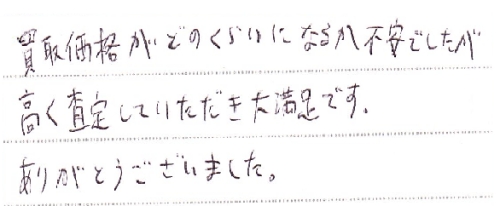 買取価格がどのくらいになるか不安でしたが
高く査定していただき大満足です。
ありがとうございました。